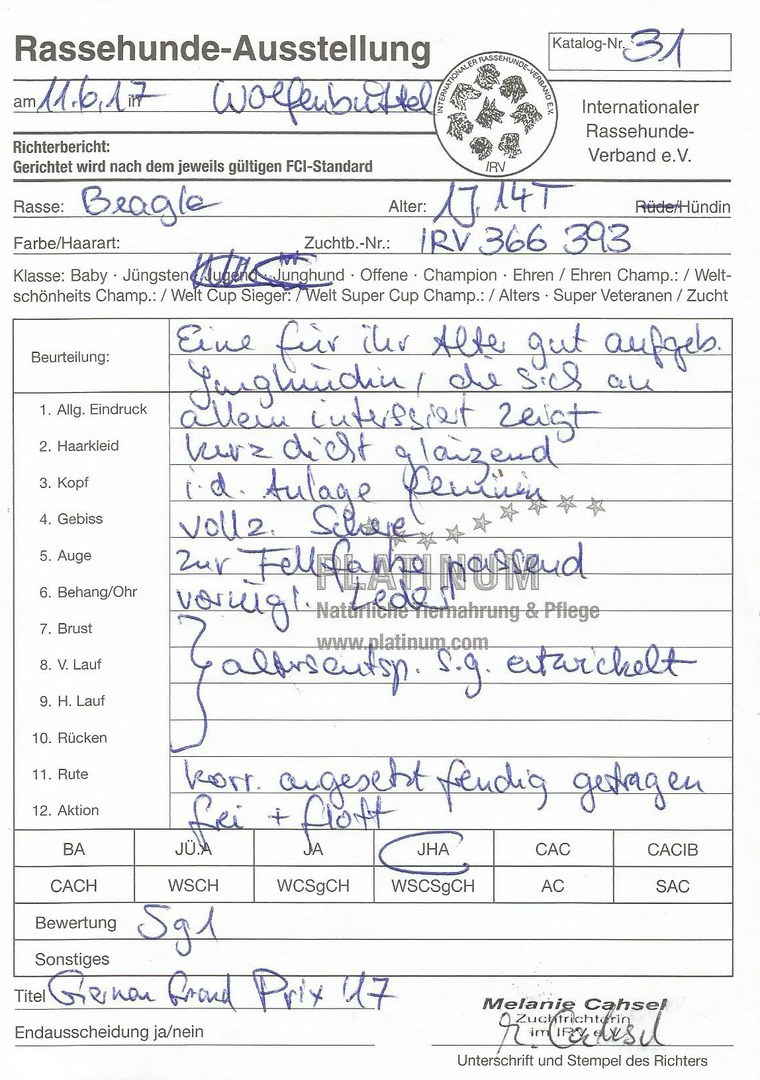 Rassehunde-Ausstellung
Katalog-Nr. 31
am 11.6.17 in Wolfenbüttel
INTERNATIONALER RASSEHUNDE-VERBAND E.V.
IRV
Internationaler
Rassehunde-
Verband e.V.
Richterbericht:
Gerichtet wird nach dem jeweils gültigen FCI-Standard
Rasse: Beagle Alter: 1J. 14T Rüde/Hündin
Farbe/Haarart: Zuchtb.-Nr.: IRV 366 393
Klasse: Baby · Jüngsten · Jugend · Junghund · Offene · Champion · Ehren / Ehren Champ.: / Welt-
schönheits Champ.: / Welt Cup Sieger: / Welt Super Cup Champ.: / Alters · Super Veteranen / Zucht
Beurteilung: Eine für ihr Alter gut aufgeb.
Junghündin, die sich an
1. Allg. Eindruck allem interssiert zeigt
2. Haarkleid kurz dicht glänzend
3. Kopf i.d. Anlage feminin
4. Gebiss vollz. Schere
5. Auge zur Fellfarbe passend
PLATINUM
6. Behang/Ohr vorzügl. Leder
Natürliche Tiernahrung & Pflege
7. Brust
www.platinum.com
8. V. Lauf altersentsp. s.g. entwickelt
9. H. Lauf
10. Rücken
11. Rute korr. angesetzt freudig getragen
12. Aktion frei + flott
BA JÜ.A JA JHA CAC CACIB
CACH WSCH WCSgCH WSCSgCH AC SAC
Bewertung Sg1
Sonstiges
Titel German Grand Prix '17
Melanie Cahsel
Zuchtrichterin
im IRV e.V.
M. Cahsel
Endausscheidung ja/nein
Unterschrift und Stempel des Richters